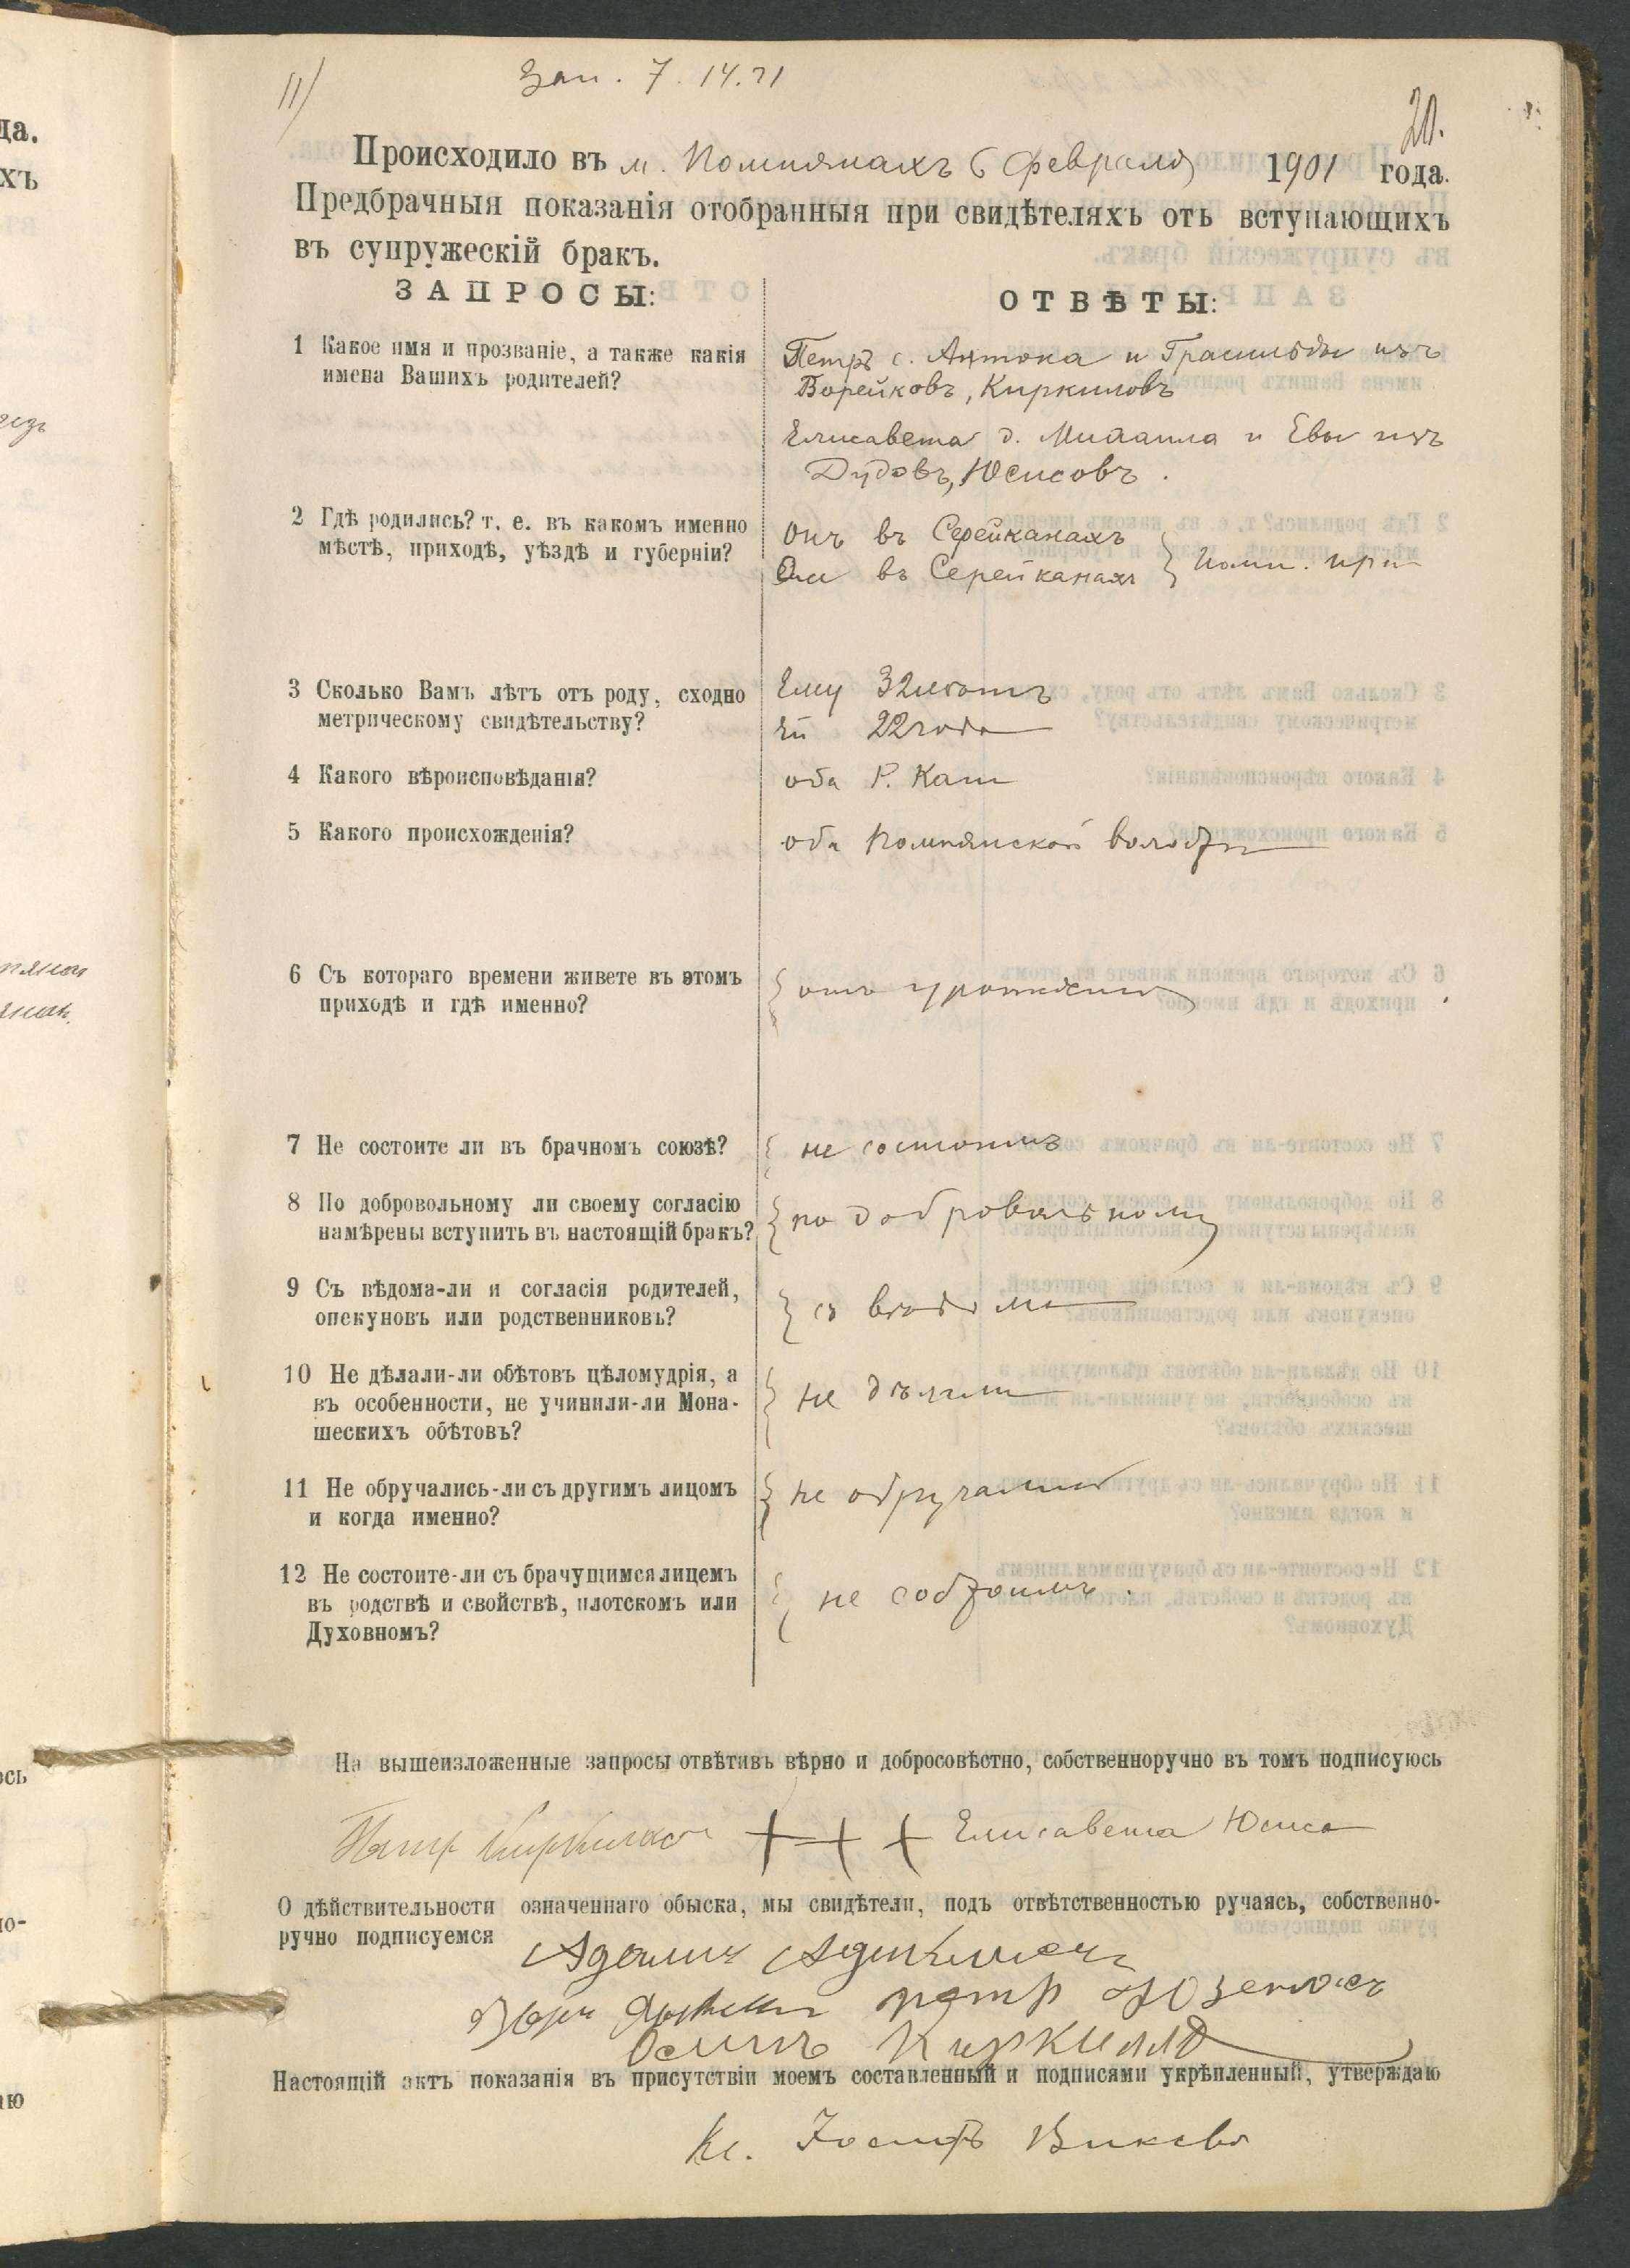 11/
Зап. 7. 14. 21
20.
Происходило въ м. Помпянахъ 6 Февраля 1901 года.
Предбрачныя показанія отобранныя при свидѣтеляхъ отъ вступающихъ
въ супружескій бракъ.
ЗАПРОСЫ:
ОТВѢТЫ:
1 Какое имя и прозваніе, а также какія
имена Вашихъ родителей?
Петръ с. Антона и Грасильды изъ
Борейковъ, Киркиловъ
Елисавета д. Михаила и Евы изъ
Дудовъ, Юсисовъ.
2 Гдѣ родились? т. е. въ какомъ именно
мѣстѣ, приходѣ, уѣздѣ и губерніи?
Онъ въ Серейканахъ
Она въ Серейканахъ } Помп. при
3 Сколько Вамъ лѣтъ отъ роду, сходно
метрическому свидѣтельству?
Ему 32
Ей 22 года
4 Какого вѣроисповѣданія?
оба Р. Кат
5 Какого происхожденія?
оба Помпянской волости
6 Съ котораго времени живете въ этомъ
приходѣ и гдѣ именно?
отъ урожденія
7 Не состоите ли въ брачномъ союзѣ?
не состоимъ
8 По добровольному ли своему согласію
намѣрены вступить въ настоящій бракъ?
по добровольному
9 Съ вѣдома-ли и согласія родителей,
опекуновъ или родственниковъ?
съ вѣдома
10 Не дѣлали-ли обѣтовъ цѣломудрія, а
въ особенности, не учинили-ли Мона-
шескихъ обѣтовъ?
не дѣлали
11 Не обручались-ли съ другимъ лицомъ
и когда именно?
не обручались
12 Не состоите-ли съ брачущимся лицемъ
въ родствѣ и свойствѣ, плотскомъ или
Духовномъ?
не состоимъ.
На вышеизложенные запросы отвѣтивъ вѣрно и добросовѣстно, собственноручно въ томъ подписуюсь
+ + + Елисавета Юсиса
О дѣйствительности означеннаго обыска, мы свидѣтели, подъ отвѣтственностью ручаясь, собственно-
ручно подписуемся
Осипъ Киркилло
Настоящій актъ показанія въ присутствіи моемъ составленный и подписями укрѣпленный, утверждаю
Кс. Іосифъ